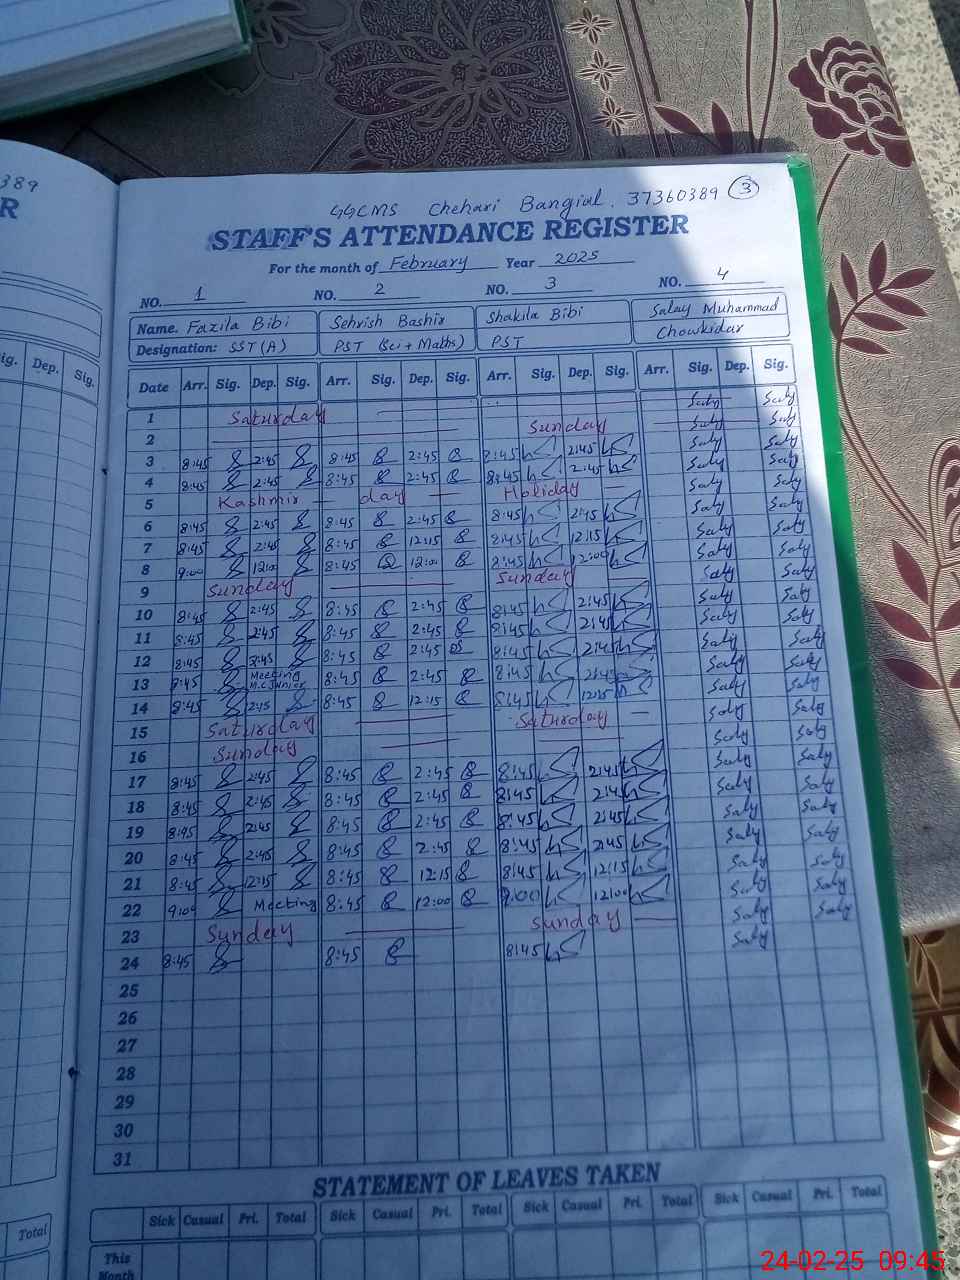 389
R
GGCMS Chehari Bangial. 37360389 3
STAFF'S ATTENDANCE REGISTER
For the month of February Year 2025
NO. 1 NO. 2 NO. 3 NO. 4
Name. Fazila Bibi Sehrish Bashir Shakila Bibi Salay Muhammad
Designation: SST (A) PST (Sci + Maths) PST Chowkidar
ig. Dep. Sig.
Date Arr. Sig. Dep. Sig. Arr. Sig. Dep. Sig. Arr. Sig. Dep. Sig. Arr. Sig. Dep. Sig.
1 Saturday Saly Saly
2 Sunday Saly Saly
3 8:45 2:45 8:45 2:45 8:45 2:45 Saly Saly
4 8:45 2:45 8:45 2:45 8:45 2:45 Saly Saly
5 Kashmir day Holiday Saly Saly
6 8:45 2:45 8:45 2:45 8:45 2:45 Saly Saly
7 8:45 2:45 8:45 12:15 8:45 12:15 Saly Saly
8 9:00 12:00 8:45 12:00 8:45 12:00 Saly Saly
9 Sunday Sunday Saly Saly
10 8:45 2:45 8:45 2:45 8:45 2:45 Saly Saly
11 8:45 2:45 8:45 2:45 8:45 2:45 Saly Saly
12 8:45 2:45 8:45 2:45 8:45 2:45 Saly Saly
13 8:45 Meeting 8:45 2:45 8:45 2:45 Saly Saly
14 8:45 2:15 8:45 12:15 8:45 12:15 Saly Saly
15 Saturday Saturday Saly Saly
16 Sunday Saly Saly
17 8:45 2:45 8:45 2:45 8:45 2:45 Saly Saly
18 8:45 2:45 8:45 2:45 8:45 2:45 Saly Saly
19 8:45 2:45 8:45 2:45 8:45 2:45 Saly Saly
20 8:45 2:45 8:45 2:45 8:45 2:45 Saly Saly
21 8:45 12:15 8:45 12:15 8:45 12:15 Saly Saly
22 9:00 Meeting 8:45 12:00 9:00 12:00 Saly Saly
23 Sunday Sunday Saly Saly
24 8:45 8:45 8:45 Saly
25
26
27
28
29
30
31
STATEMENT OF LEAVES TAKEN
Sick Casual Pri. Total Sick Casual Pri. Total Sick Casual Pri. Total Sick Casual Pri. Total
Total
This
Month
24-02-25 09:45